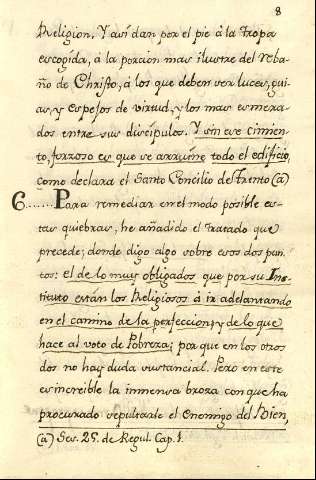 8
Religion. Y asi dan por el pie à la Tropa
escogida, à la porcion mas ilustre del reba-
ño de Christo, à los que deben ser luces, gui-
as, y espejos de virtud, y los mas esmera-
dos entre sus discipulos. Y sin ese cimien-
to, forzoso es que se arruine todo el edificio,
como declara el Santo Concilio de Trento (a)
6...... Para remediar en el modo posible es-
tas quiebras, he añadido el Tratado que
precede; donde digo algo sobre esos dos pun-
tos: el de lo muy obligados que por su Ins-
tituto están los Religiosos à ir adelantando
en el camino de la perfeccion; y de lo que
hace al voto de Pobreza; porque en los otros
dos no hay duda sustancial. Pero en este
es increible la inmensa broza con que ha
procurado sepultarle el Enemigo del Bien,
(a) Ses. 25. de Regul. Cap. 1.